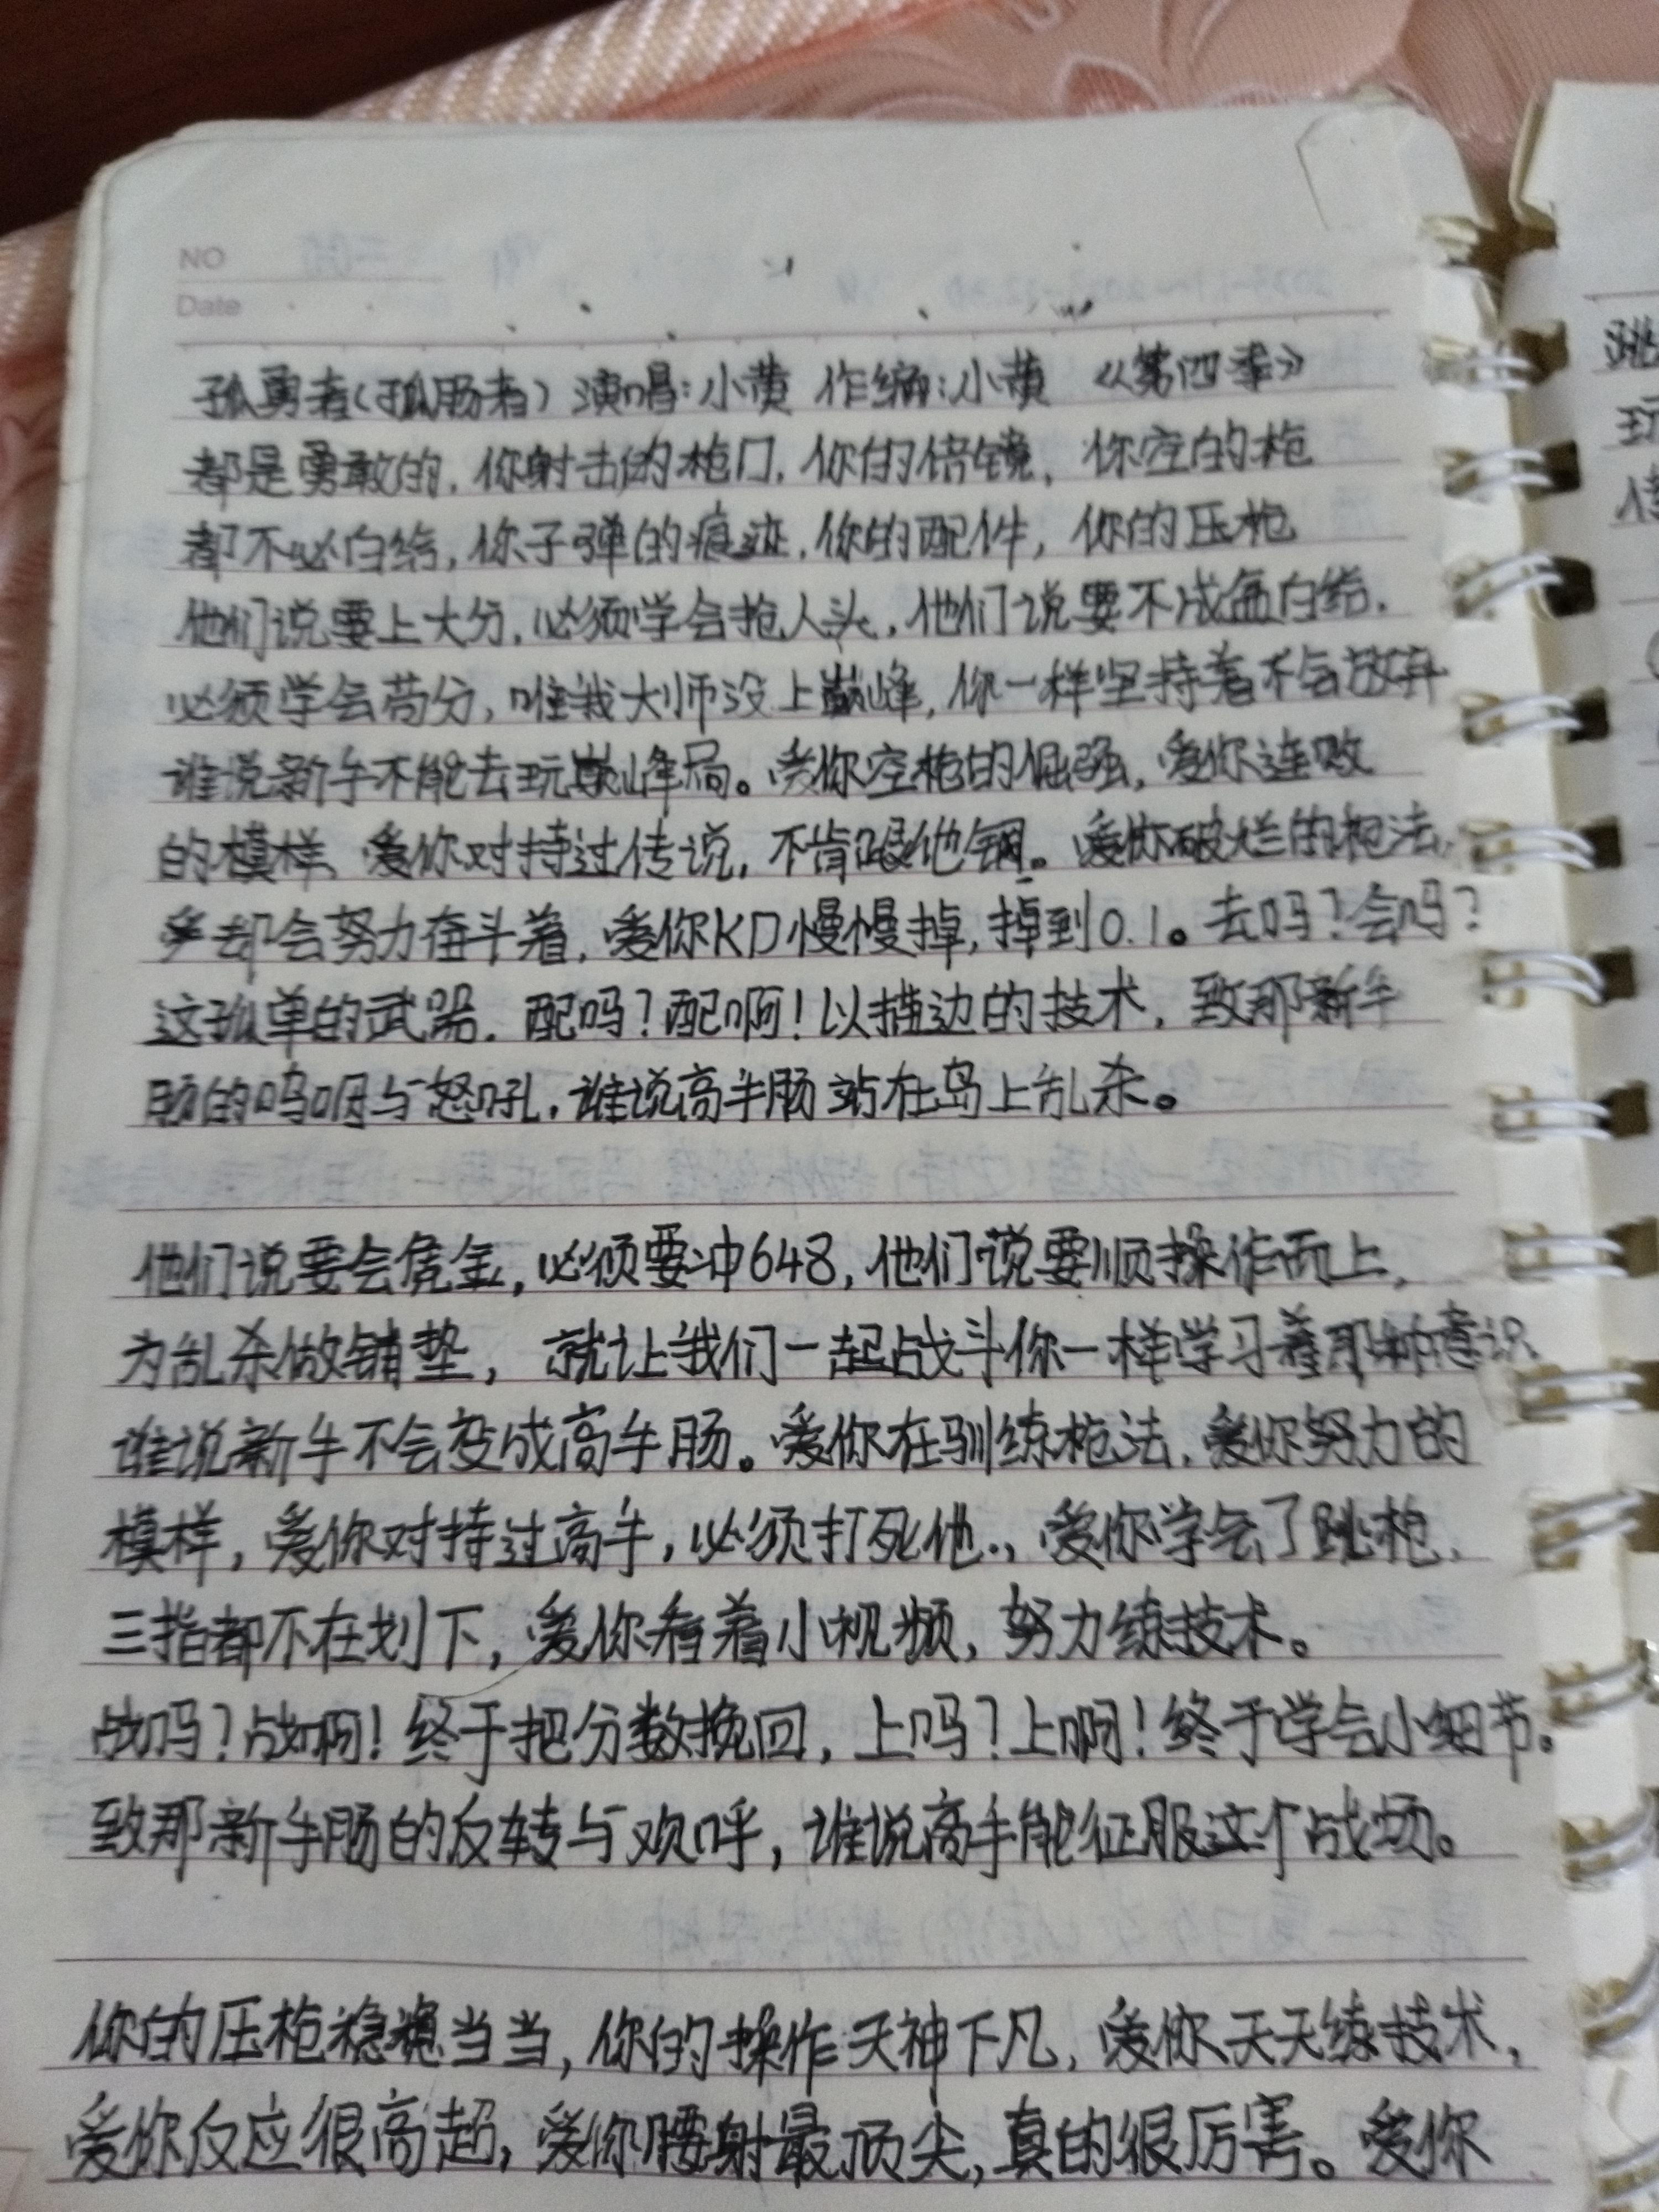 NO
Date
孤勇者(孤肠者) 演唱:小黄 作编:小黄 《第四季》
都是勇敢的,你射击的枪口,你的倍镜,你空的枪
都不必白给,你子弹的痕迹,你的配件,你的压枪
他们说要上大分,必须学会抢人头,他们说要不成盒白给.
必须学会苟分,唯我大师没上巅峰,你一样坚持着不会放弃
谁说新手不能去玩巅峰局。爱你空枪的倔强,爱你连败
的模样、爱你对持过传说,不肯跟他钢。爱你破烂的枪法,
却会努力奋斗着,爱你KD慢慢掉,掉到0.1。去吗?会吗?
这孤单的武器.配吗?配啊!以描边的技术,致那新手
肠的呜咽与怒吼,谁说高手肠站在岛上乱杀。
他们说要会氪金,必须要冲648,他们说要顺操作而上,
为乱杀做铺垫,就让我们一起战斗你一样学习着那种意识
谁说新手不会变成高手肠。爱你在驯练枪法,爱你努力的
模样,爱你对持过高手,必须打死他.,爱你学会了跳枪.
三指都不在划下,爱你看着小视频,努力练技术。
战吗?战啊!终于把分数挽回,上吗?上啊!终于学会小细节。
致那新手肠的反转与欢呼,谁说高手能征服这个战场。
你的压枪稳稳当当,你的操作天神下凡,爱你天天练技术,
爱你反应很高超,爱你腰射最顶尖,真的很厉害。爱你
跳
玩